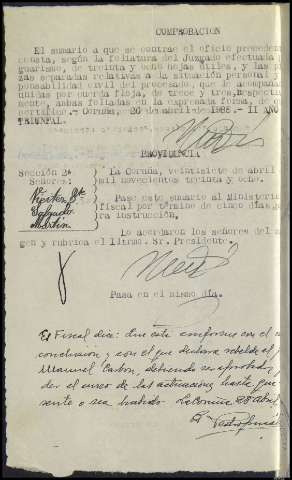 COMPROBACION
El sumario a que se contrae el oficio precedente
consta, según la foliatura del Juzgado efectuada
guarismo, de treinta y ocho hojas útiles, y las pie
zas separadas relativas a la situación personal y
ponsabilidad civil del procesado, que le acompañan
unidas por cuerda floja, de trece y tros, respectiva
mente, ambas foliadas en la expresada forma, de que
certifico.- Coruña, 26 de abril de 1938.- II AÑO
TRIUNFAL.
PROVIDENCIA
Sección 2ª
Señores:
La Coruña, veintisiete de abril
mil novecientos treinta y ocho.
Salgado
Martin
Pase este sumario al Ministerio
fiscal por término de cinco días
ra instrucción.
Lo acordaron los señores del
gen y rubrica el Iltmo. Sr. Presidente.
Pasa en el mismo día.
El Fiscal dice: Que está conforme con el
conclusión y con el que declara rebelde al
Manuel Carbon, debiendo
der el curso de las actuaciones hasta que
sente o sea habido. La Coruña 28 Abril
El